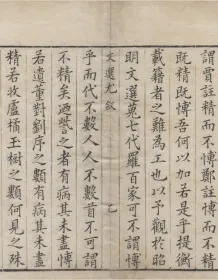 謂賈註精而不愽鄭註愽而不精
既精既愽吾何以加若是乎提衡
載籍者之難為工也以予觀於昭
明文選蒐七代羅百家可不謂愽
乎而代不數人人不數首不可謂
文選尤敘
乙
不精矣廼譽之者有病其未盡愽
若遺董對劉序之類有病其未盡
精若收盧橘玉樹之類何見之殊